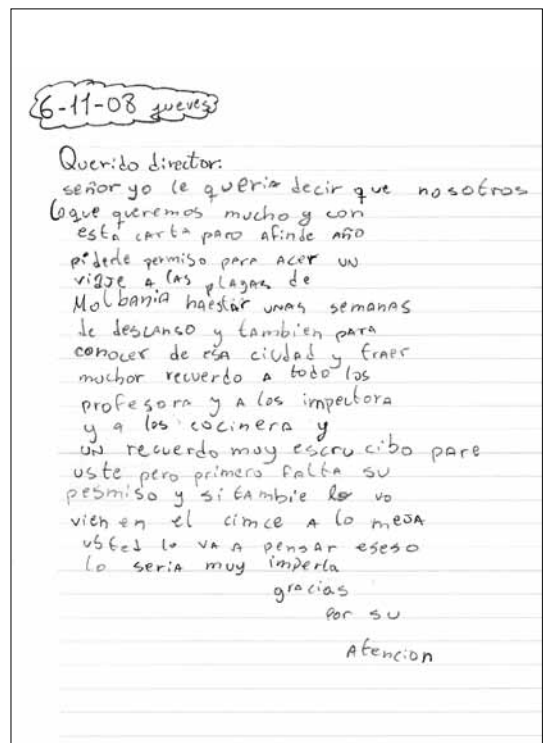 6-11-08 jueves
Querido director:
señor yo le queria decir que nosotros
loque queremos mucho y con
esta carta paro afinde año
piderle permiso para acer un
viaje a las plagas de
Molbania haestar unas semanas
de descanso y tambien para
conocer de esa ciudad y traer
muchor recuerdo a todo los
profesora y a los impectora
y a los cocinera y
un recuerdo muy escru cibo pare
uste pero primero falta su
pesmiso y si tambie lo vo
vien en el cimce a lo meja
usted lo va a pensar eseso
lo seria muy imperla
gracias
por su
atencion